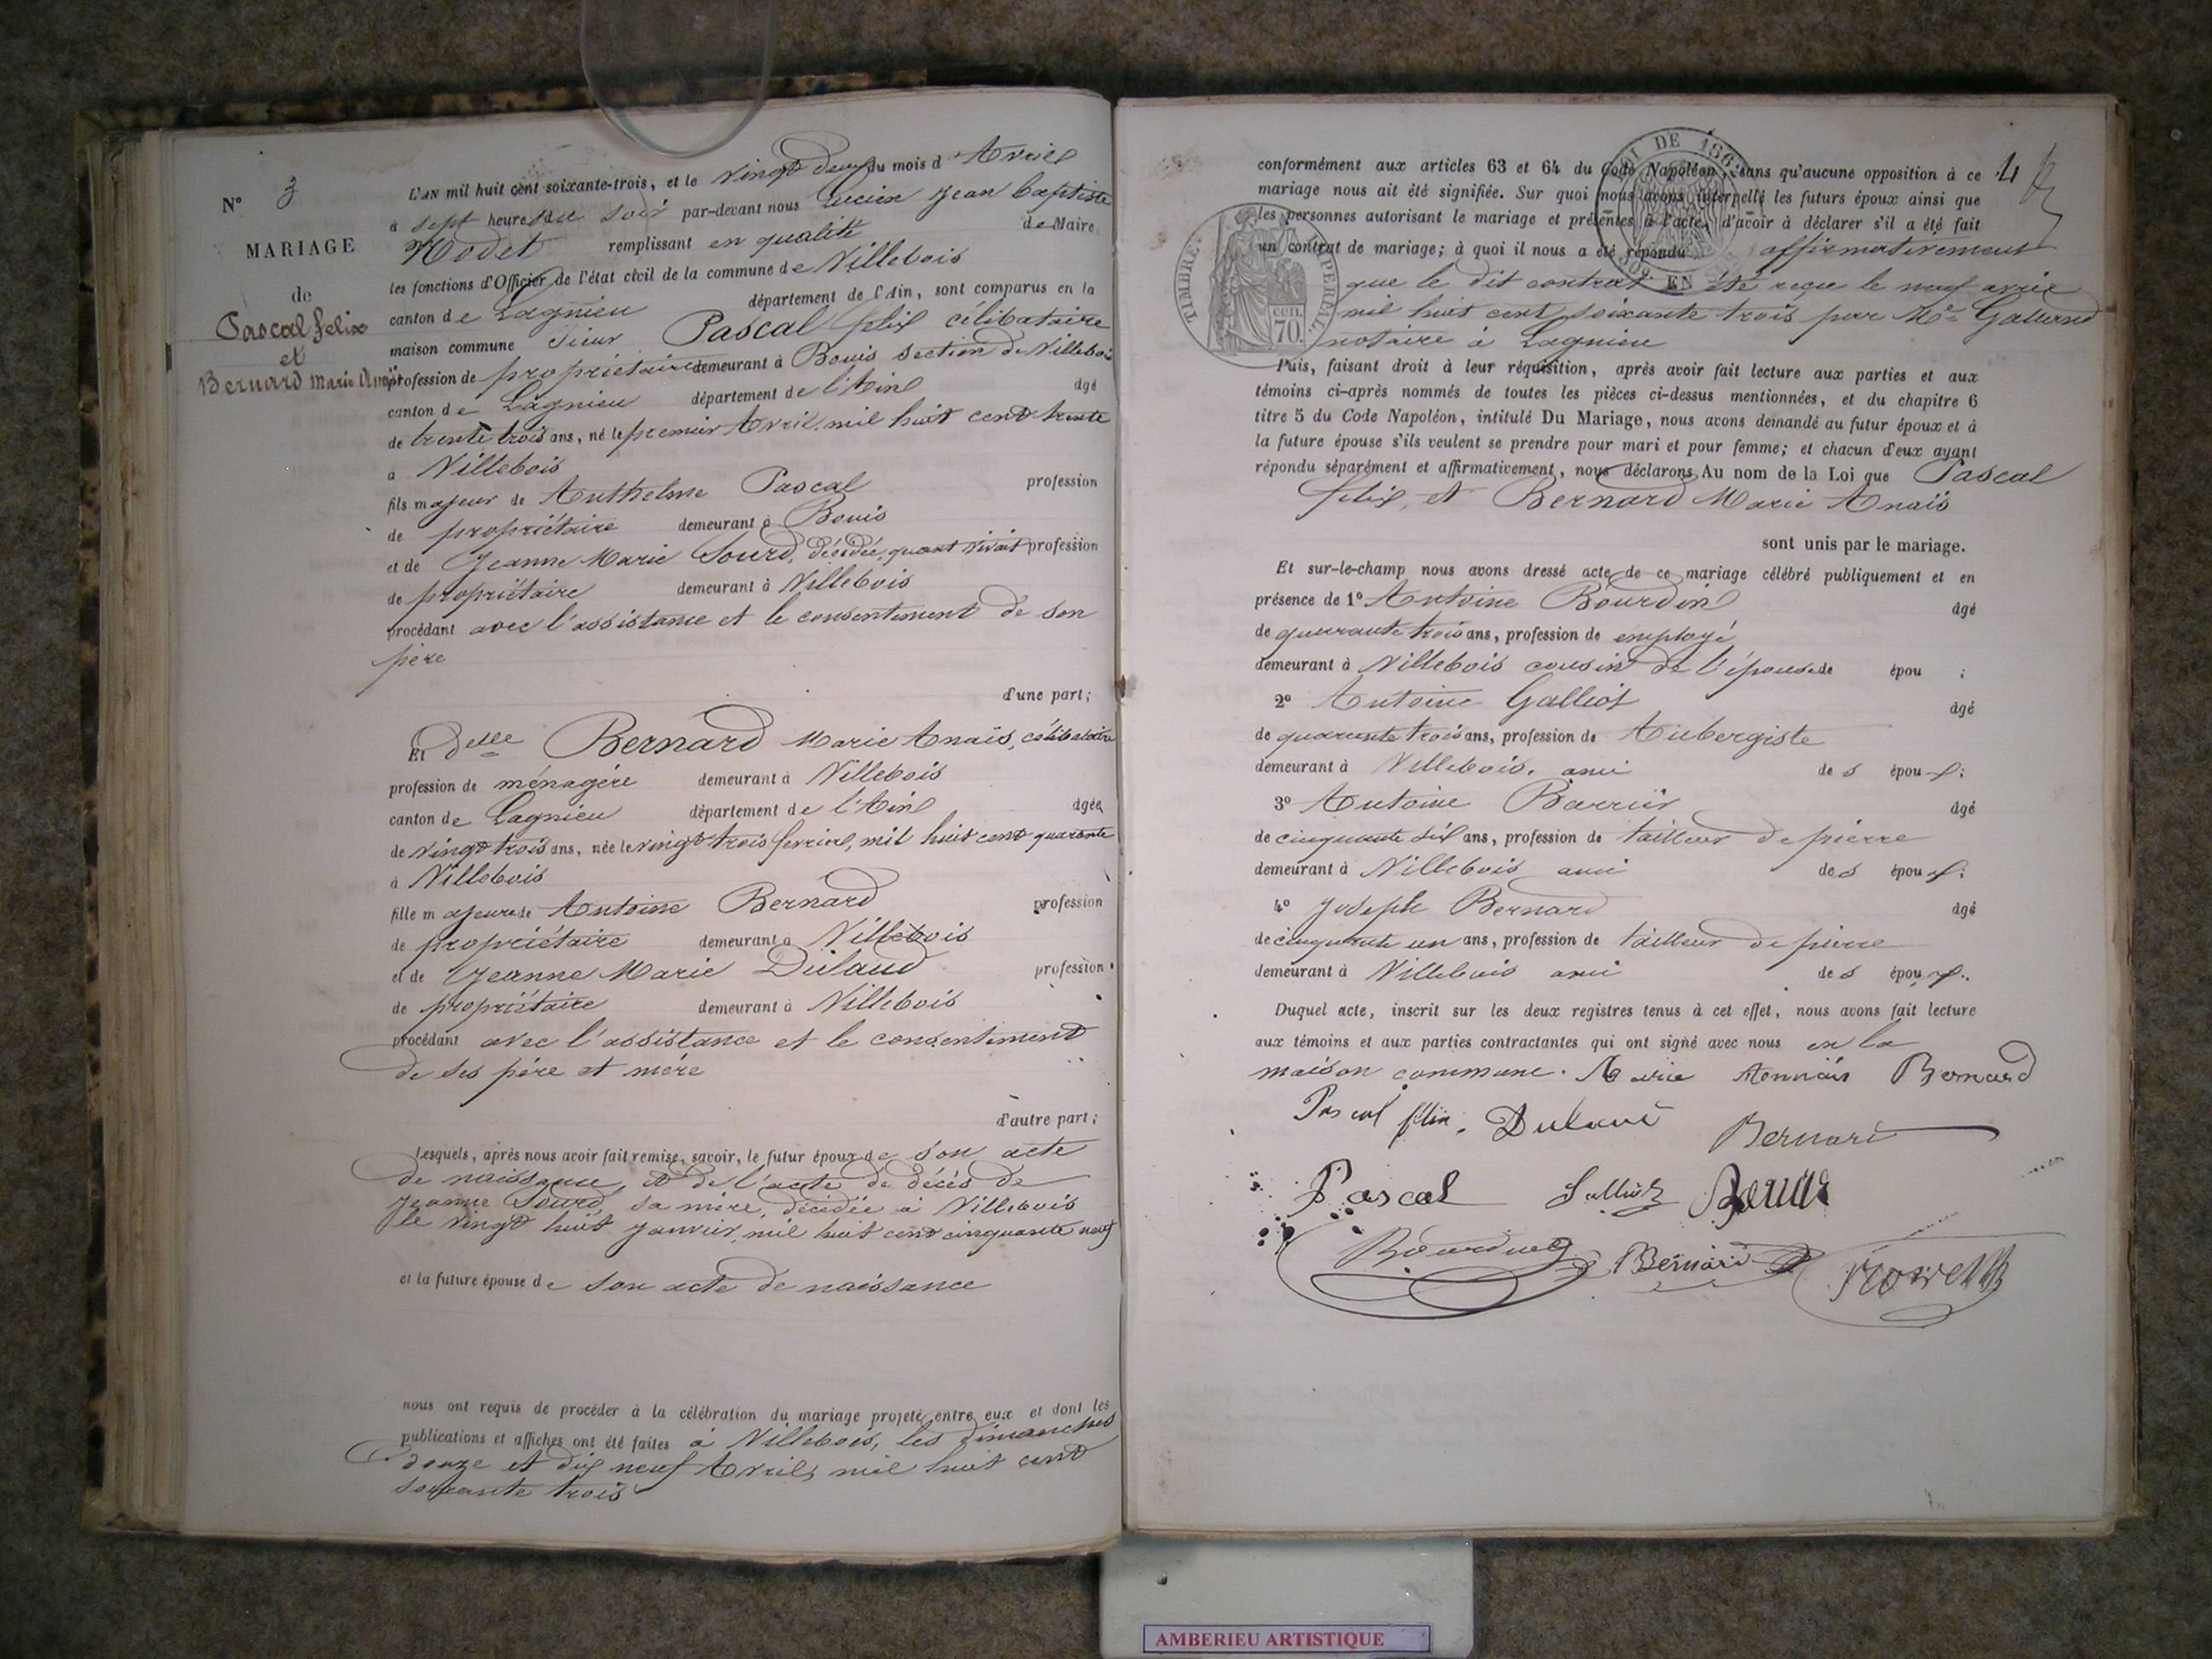 N° 3
MARIAGE
de
Pascal felix
et
Bernard Marie Anaïs
L'AN mil huit cent soixante-trois, et le vingt deux du mois d'Avril
à sept heures du soir par-devant nous Lucien Jean Baptiste
remplissant en qualité de Maire
les fonctions d'Officier de l'état civil de la commune de Villebois
canton de Lagnieu département de l'Ain, sont comparus en la
maison commune Sieur Pascal felix célibataire
profession de propriétaire demeurant à Bouis section de Villebois
canton de Lagnieu département de l'Ain âgé
de trente trois ans, né le premier Avril mil huit cent trente
à Villebois
fils majeur de Anthelme Pascal profession
de propriétaire demeurant à Bouis
et de Jeanne Marie Sourd, décédée, quant vivait profession
de propriétaire demeurant à Villebois
procédant avec l'assistance et le consentement de son
père
d'une part;
Et Delle Bernard Marie Anaïs, célibataire
profession de ménagère demeurant à Villebois
canton de Lagnieu département de l'Ain âgée
de vingt trois ans, née le vingt trois fevrier, mil huit cent quarante
à Villebois
fille majeure de Antoine Bernard profession
de propriétaire demeurant à Villebois
et de Jeanne Marie Dulaud profession
de propriétaire demeurant à Villebois
procédant avec l'assistance et le consentement
de ses père et mère
d'autre part;
Lesquels, après nous avoir fait remise, savoir, le futur époux de son acte
de naissance, et de l'acte de décès de
Jeanne Sourd, sa mère, décédée à Villebois
le vingt huit janvier, mil huit cent cinquante neuf
et la future épouse de son acte de naissance
nous ont requis de procéder à la célébration du mariage projeté entre eux et dont les
publications et affiches ont été faites à Villebois, les dimanches
douze et dix neuf Avril, mil huit cent
soixante trois
4
conformément aux articles 63 et 64 du Code Napoléon, sans qu'aucune opposition à ce
mariage nous ait été signifiée. Sur quoi nous avons interpellé les futurs époux ainsi que
les personnes autorisant le mariage et présentes à l'acte, d'avoir à déclarer s'il a été fait
un contrat de mariage; à quoi il nous a été répondu affirmativement
que le dit contrat a été reçu le neuf avril
mil huit cent soixante trois par Me
notaire à Lagnieu
TIMBRE
70
cen.
DE 186
EN
Puis, faisant droit à leur réquisition, après avoir fait lecture aux parties et aux
témoins ci-après nommés de toutes les pièces ci-dessus mentionnées, et du chapitre 6
titre 5 du Code Napoléon, intitulé Du Mariage, nous avons demandé au futur époux et à
la future épouse s'ils veulent se prendre pour mari et pour femme; et chacun d'eux ayant
répondu séparément et affirmativement, nous déclarons Au nom de la Loi que Pascal
felix, et Bernard Marie Anaïs
sont unis par le mariage.
Et sur-le-champ nous avons dressé acte de ce mariage célébré publiquement et en
présence de 1° Antoine Bourdin âgé
de quarante trois ans, profession de employé
demeurant à Villebois cousin de l'épouse de épou ;
2° Antoine Galliot âgé
de quarante trois ans, profession de Aubergiste
demeurant à Villebois, ami de s époux;
3° Antoine Barrier âgé
de cinquante six ans, profession de tailleur de pierre
demeurant à Villebois ami des époux;
4° Joseph Bernard âgé
de cinquante un ans, profession de tailleur de pierre
demeurant à Villebois ami des époux.
Duquel acte, inscrit sur les deux registres tenus à cet effet, nous avons fait lecture
aux témoins et aux parties contractantes qui ont signé avec nous en la
maison commune. Marie Bernard
Pascal félix. Bernard
Pascal
Bernard
AMBERIEU ARTISTIQUE